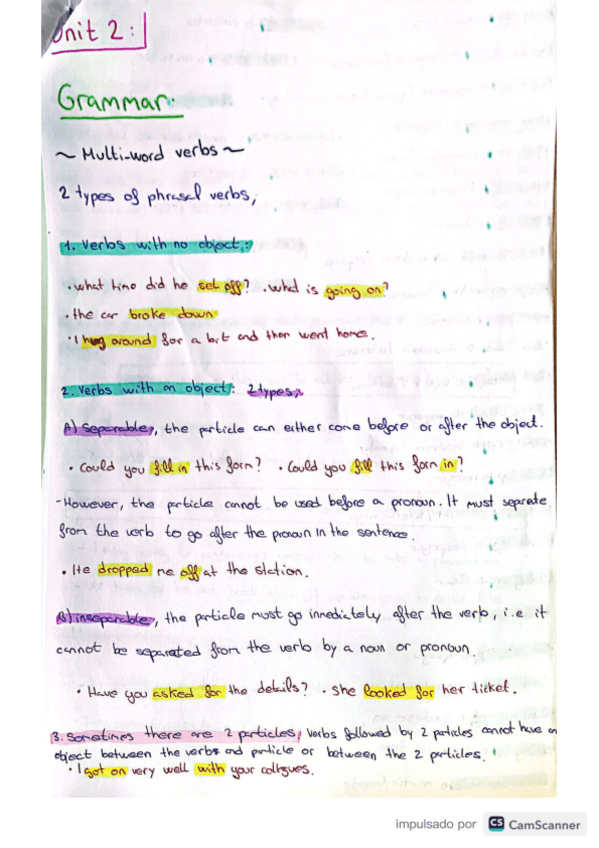 Unit 2:
Grammar.
~ Multi-word verbs ~
2 types of phrasal verbs;
1. Verbs with no object:
• what time did he set off? • what is going on?
• the car broke down
• I hung around for a bit and then went home.
2. Verbs with an object: 2 types;
A) Separable, the particle can either come before or after the object.
• Could you fill in this form? • Could you fill this form in?
- However, the particle cannot be used before a pronoun. It must separate
from the verb to go after the pronoun in the sentence.
• He dropped me off at the station.
B) inseparable, the particle must go inmediately after the verb, i.e it
cannot be separated from the verb by a noun or pronoun.
• Have you asked for the details? • She looked for her ticket.
3. Sometimes there are 2 particles, verbs followed by 2 particles cannot have an
object between the verbs and particle or between the 2 particles.
• I got on very well with your collegues.
impulsado por CS CamScanner